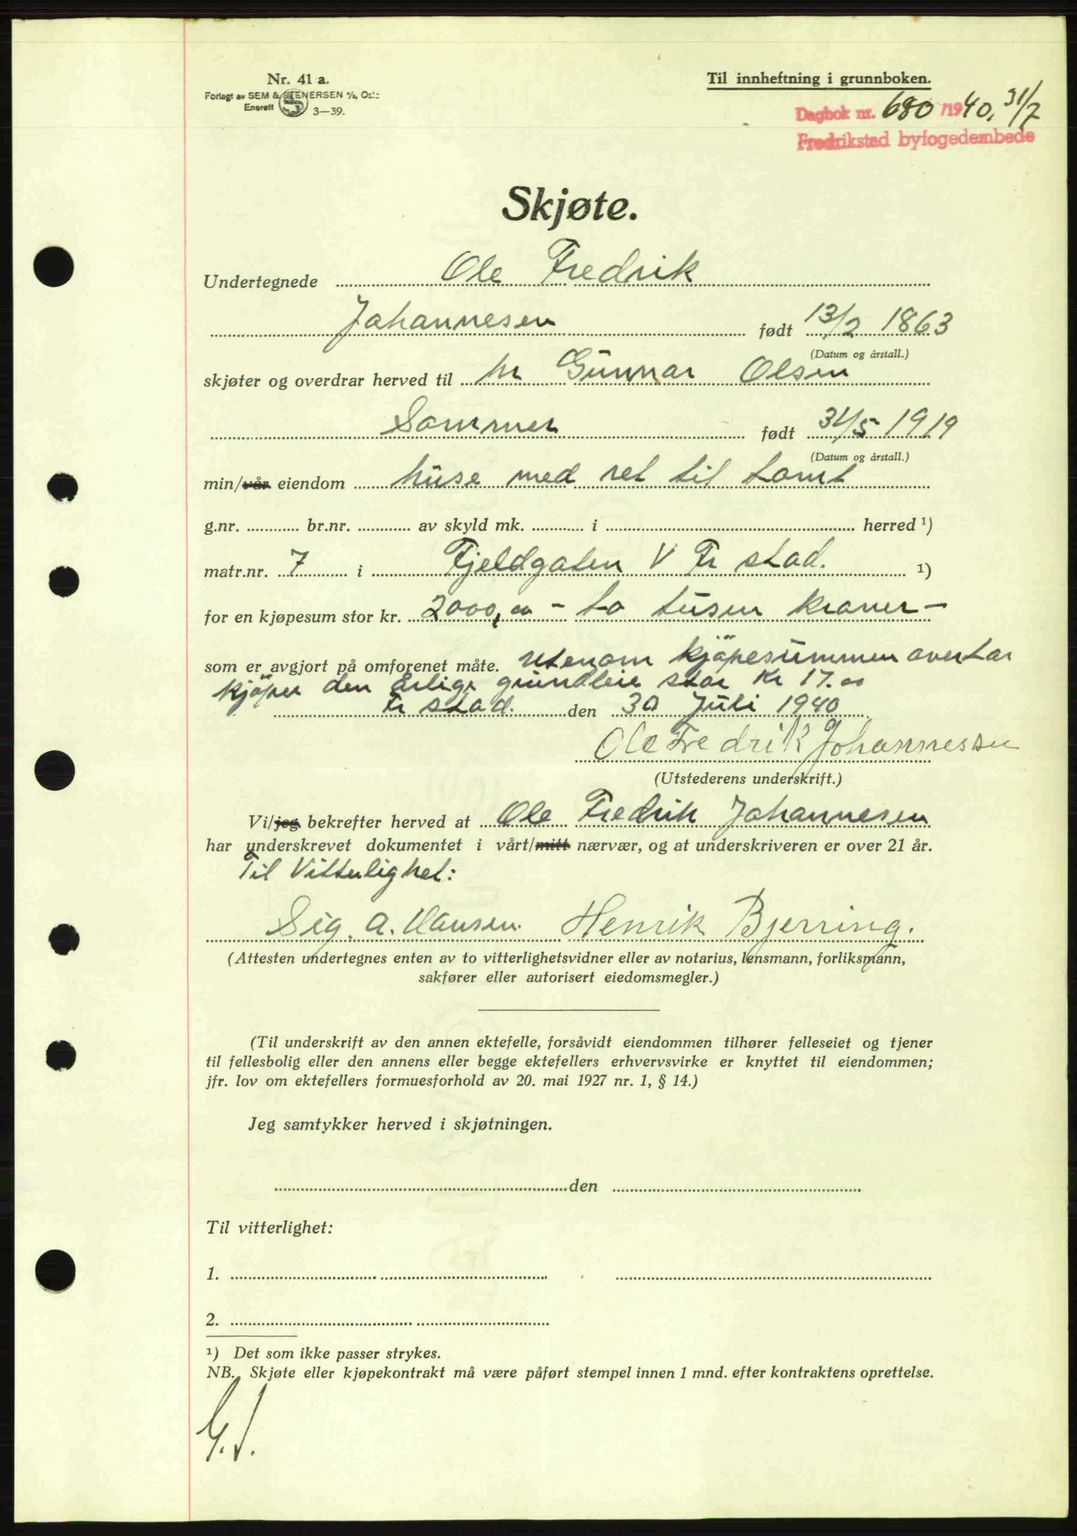 Nr. 41 a.
Forlagt av SEM & STENERSEN A/S, Oslo
Enerett S 3—39.
Til innheftning i grunnboken.
Dagbok nr. 680 / 1940, 31/7
Fredrikstad byfogedembede
Skjøte.
Undertegnede Ole Fredrik
Johannesen født 13/2 1863
(Datum og årstall.)
skjøter og overdrar herved til hr Gunnar Olsen
Sommer født 31/5 1919
(Datum og årstall.)
min/vår eiendom huse med ret til tomt
g.nr. br.nr. av skyld mk. i herred ¹)
matr.nr. 7 i Fjeldgaten V Fr stad. ¹)
for en kjøpesum stor kr. 2000,00 — to tusen kroner —
som er avgjort på omforenet måte. utenom kjöpesummen overtar
kjöper den årlige grundleie stor Kr 17.00
Fr stad. den 30 Juli 1940
Ole Fredrik Johannessen
(Utstederens underskrift.)
Vi/jeg bekrefter herved at Ole Fredrik Johannesen
har underskrevet dokumentet i vårt/mitt nærvær, og at underskriveren er over 21 år.
Til Vitterlighet:
Sig. A. Hansen. Henrik Bjerring.
(Attesten undertegnes enten av to vitterlighetsvidner eller av notarius, lensmann, forliksmann,
sakfører eller autorisert eiedomsmegler.)
(Til underskrift av den annen ektefelle, forsåvidt eiendommen tilhører felleseiet og tjener
til fellesbolig eller den annens eller begge ektefellers erhvervsvirke er knyttet til eiendommen;
jfr. lov om ektefellers formuesforhold av 20. mai 1927 nr. 1, § 14.)
Jeg samtykker herved i skjøtningen.
den
Til vitterlighet:
1.
2.
¹) Det som ikke passer strykes.
NB. Skjøte eller kjøpekontrakt må være påført stempel innen 1 mnd. efter kontraktens oprettelse.